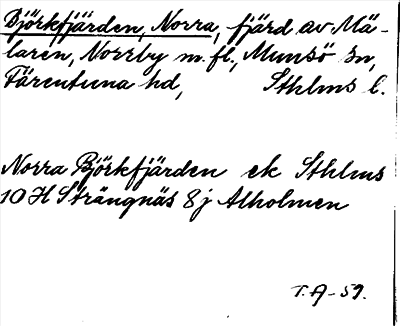 Björkfjärden, Norra, fjärd av Mä-
laren, Norrby m. fl., Munsö sn,
Färentuna hd, Sthlms l.
Norra Björkfjärden ek Sthlms
10 H Strängnäs 8 j Alholmen
T. A-59.